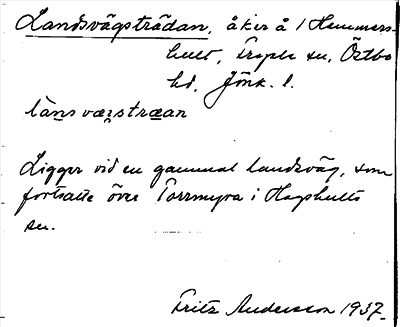 Landsvägsträdan, åker å 1 Hammars-
hult, Tofteryds sn, Östbo
hd, Jönk. l.
lànsvæsstræan
Ligger vid en gammal landsväg, som
fortsatte över Torrmyra i Hagshults
sn.
Fritz Andersson 1937.